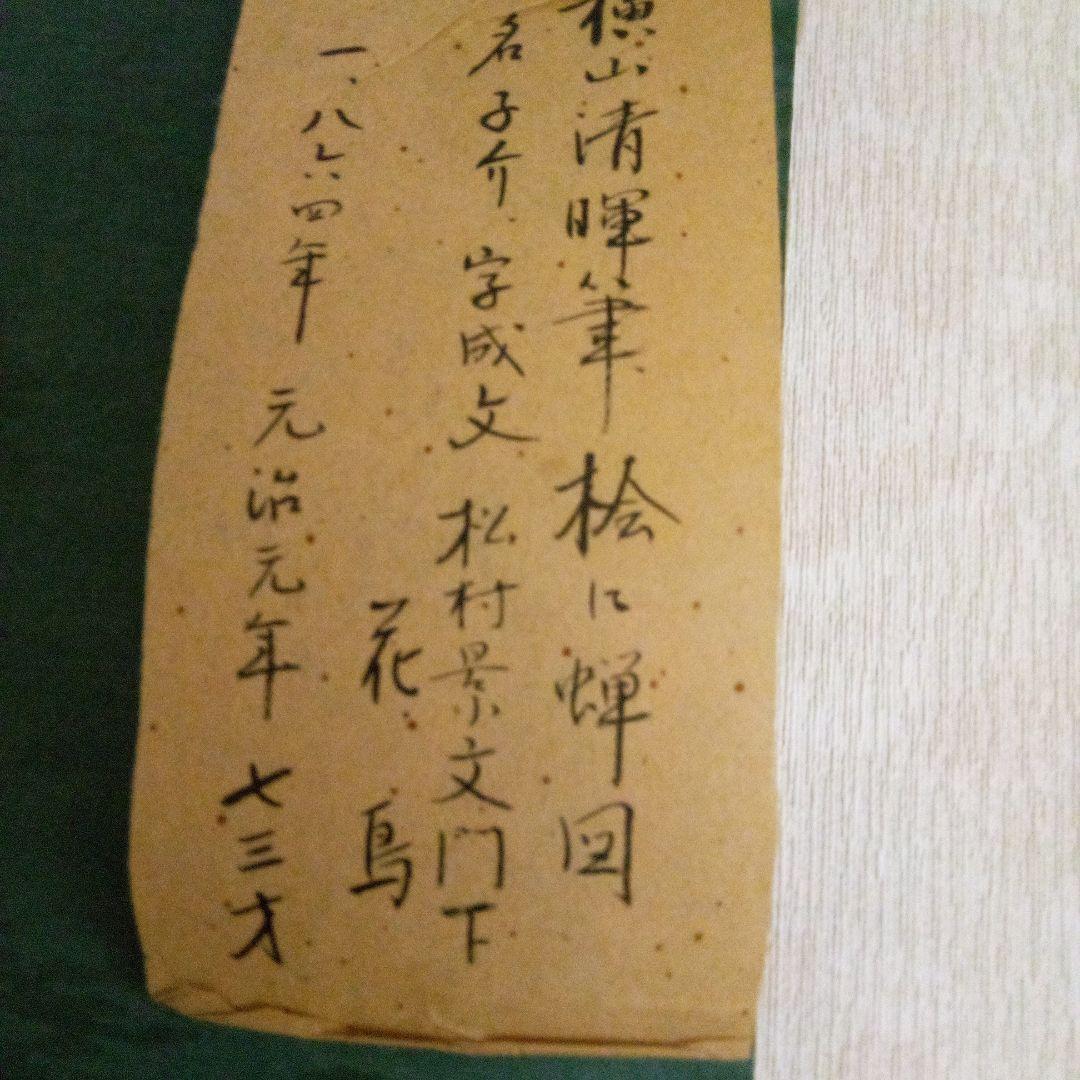 横山清暉筆 桧に蝉図
名子介 字成文 松村景文門下
花鳥
一、八六四年 元治元年 七三才